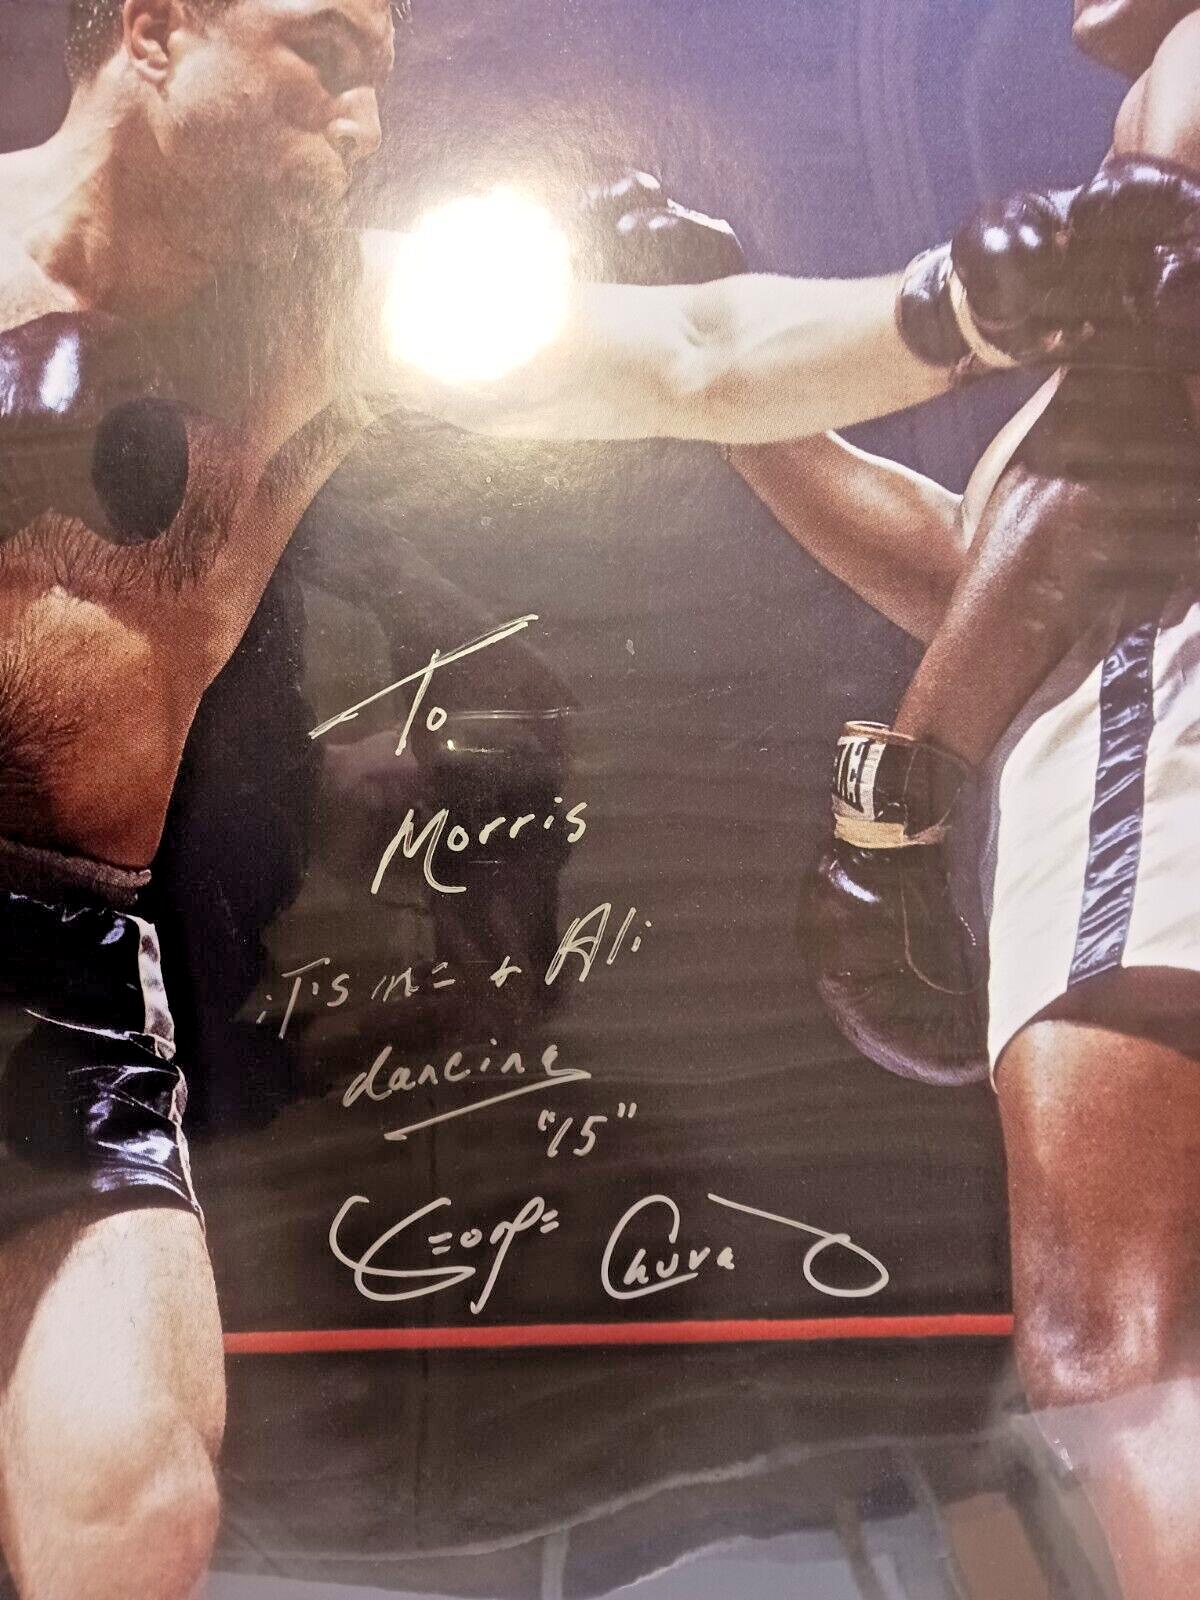 To
Morris
iT's me + Ali
dancing
"15"
George Chuvalo